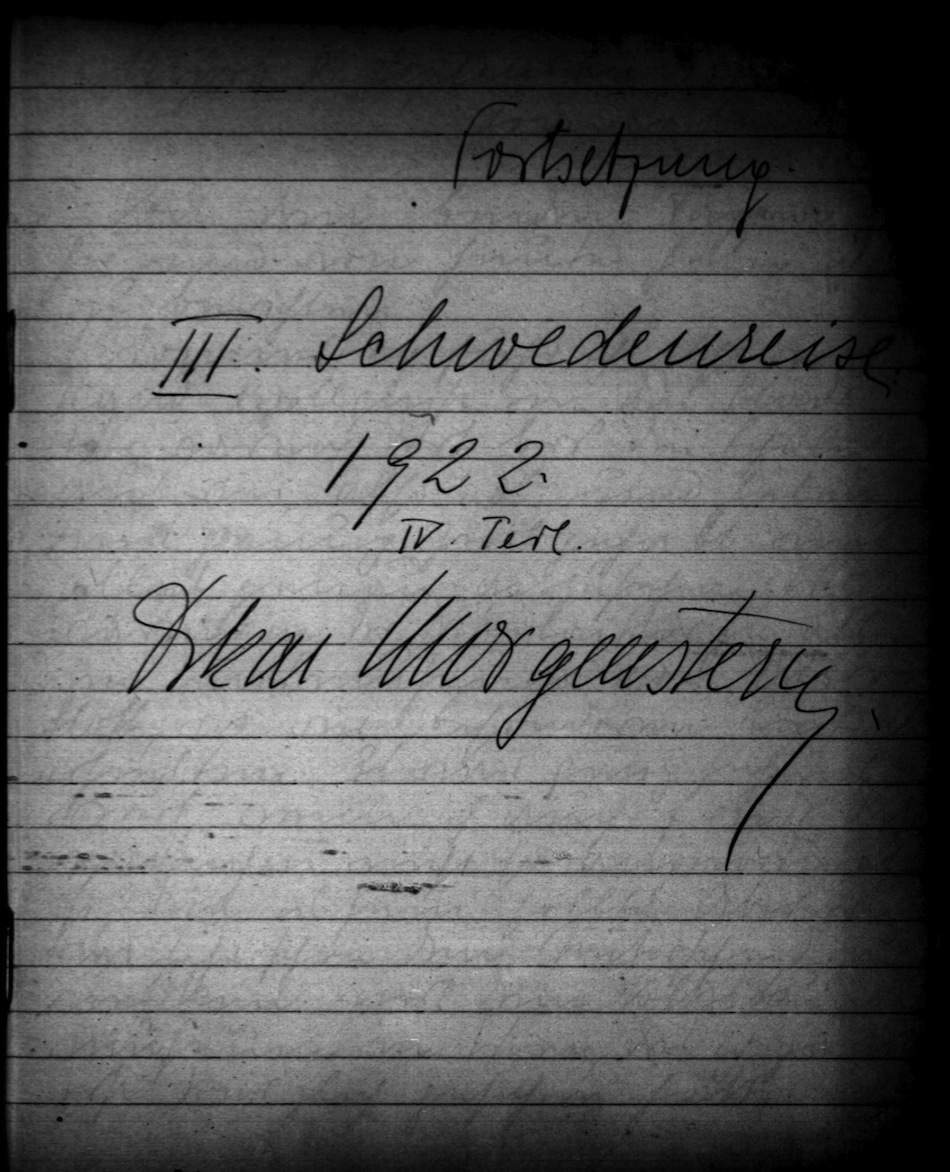 Fortsetzung.
III. Schwedenreise.
1922.
IV. Teil.
Oskar Morgenstern